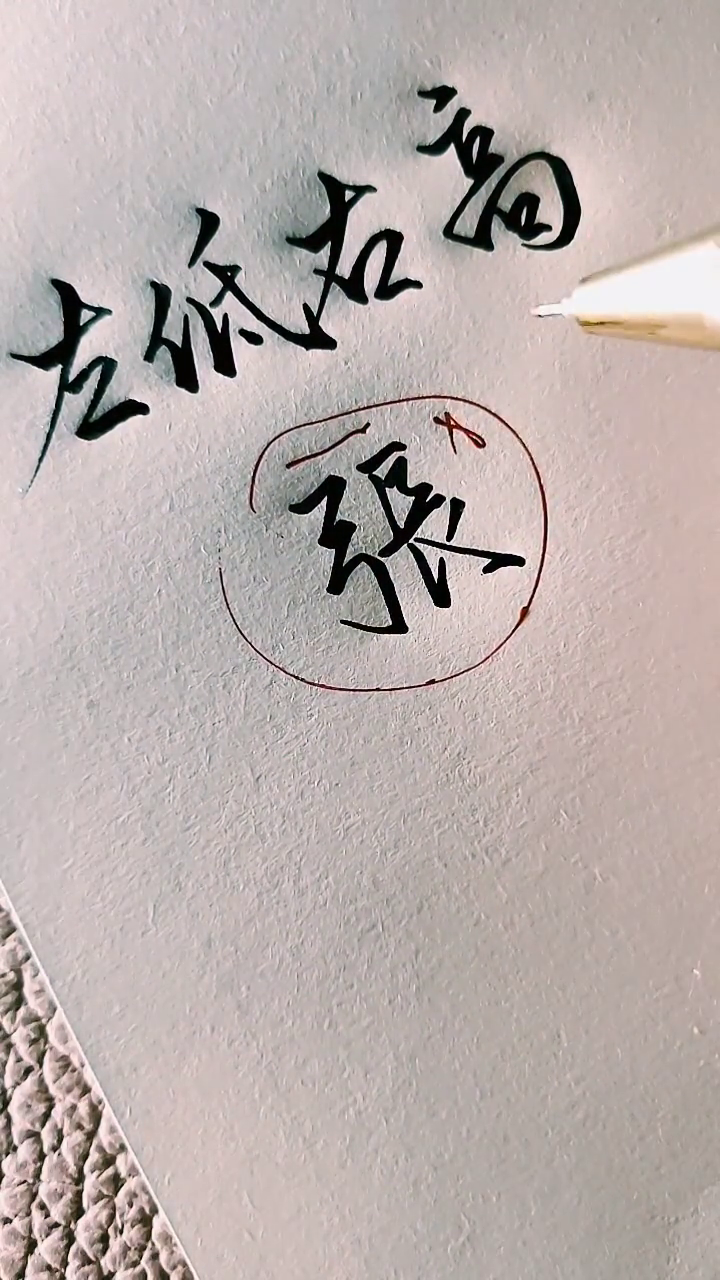 左低右高
張